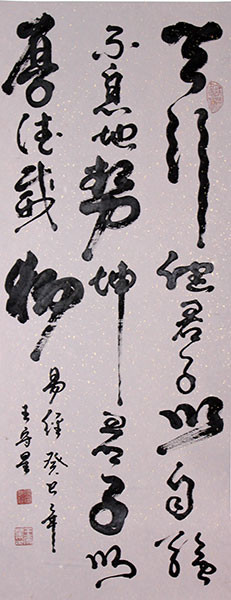 天行健君子以自强
不息地势坤君子以
厚德载物
易经癸巳年
王